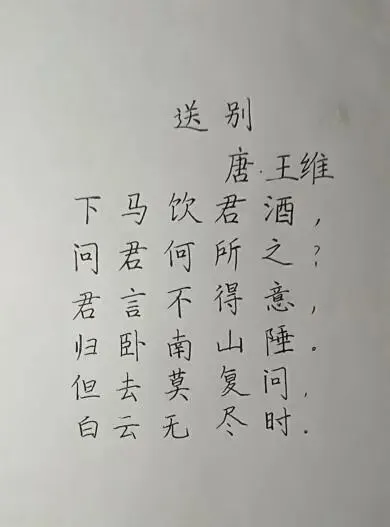 送别
唐·王维
下马饮君酒，
问君何所之？
君言不得意，
归卧南山陲。
但去莫复问，
白云无尽时.